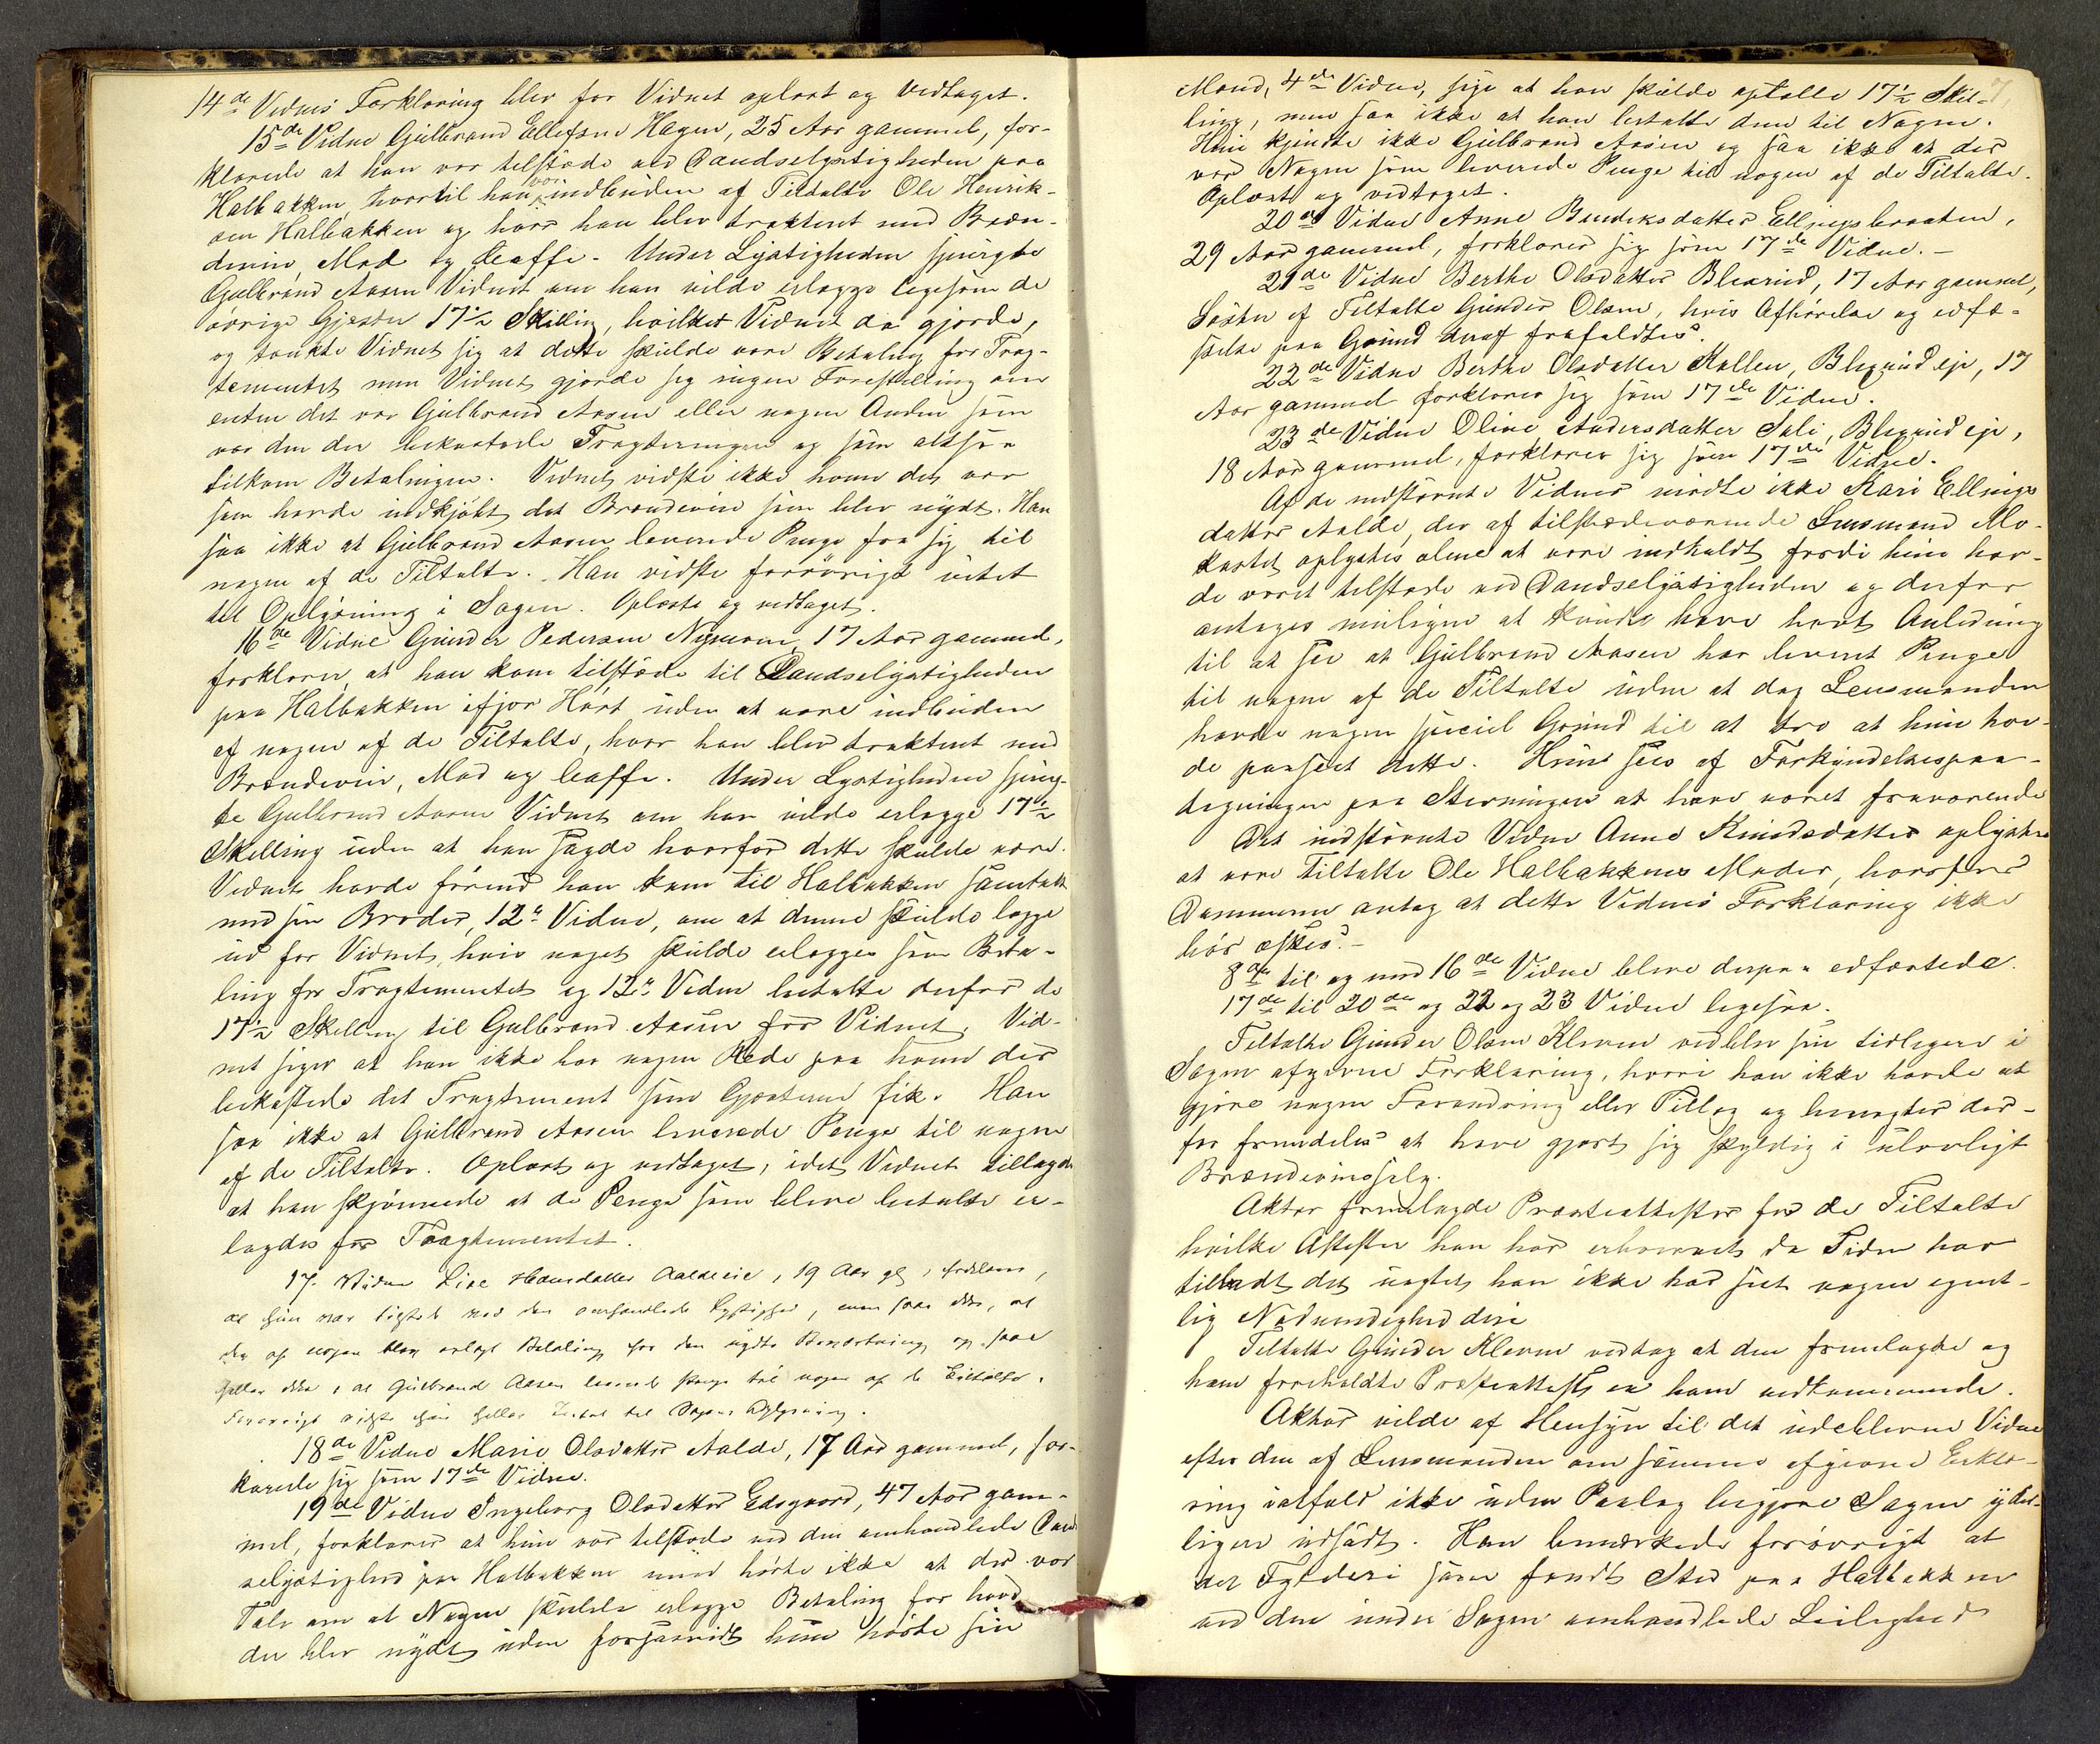 14de Vidnes Forklaring blev for Vidnet oplæst og vedtaget.
15de Vidne Gulbrand Ellefsen Hagen, 25 Aar gammel, for-
klarede at han var tilstæde ved Dandselystigheden paa
Halbakken hvortil han var indbuden af Tiltalte Ole Henrik-
sen Halbakken og hvor han blev trakteret med Bræn-
deviin, Mad og Caffe. Under Lystigheden spurgte
Gulbrand Aasen Vidnet om han vilde erlægge ligesom de
øvrige Gjester 17½ Skilling, hvilket Vidnet da gjorde,
og tænkte Vidnet sig at dette skulde være Betaling for Trag-
tementet men Vidnet gjorde sig ingen Forestilling om
enten det var Gulbrand Aasen eller nogen Anden som
var den der bekostede Tragteringen og som altsaa
tilkom Betalingen. Vidnet vidste ikke hvem det var
som havde indkjøbt det Brændeviin som blev nydt. Han
saa ikke at Gulbrand Aasen leverede Penge fra sig til
nogen af de Tiltalte. Han vidste forøvrigt intet
til Oplysning i Sagen. Oplæst og vedtaget.
16de Vidne Gunder Pedersen Nymoen 17 Aar gammel,
forklarer at han kom tilstæde til Dandselystigheden
paa Halbakken ifjor Høst uden at være indbuden
af nogen af de Tiltalte, hvor han blev trakteret med
Brændeviin, Mad og Caffe. Under Lystigheden spurg-
te Gulbrand Aasen Vidnet om han vilde erlægge 17½
Skilling uden at han sagde hvorfor dette skulde være.
Vidnet havde førend han kom til Halbakken samtalt
med sin Broder, 12te Vidne, om at denne skulde lægge
ud for Vidnet, hvis noget skulde erlægges som Beta-
ling for Tragtementet og 12te Vidne betalte derfor de
17½ Skilling til Gulbrand Aasen for Vidnet. Vid-
net siger at han ikke har nogen Rede paa hvem der
bekostede det Tragtement som Gjesterne fik. Han
saa ikke at Gulbrand Aasen leverede Penge til nogen
af de Tiltalte. Oplæst og vedtaget, idet Vidnet tillagde
at han skjønnede at de Penge som bleve betalte er-
lagdes for Tragtementet.
17. Vidne Lise Hansdatter Aaldeeie, 19 Aar gl, forklarer,
at hun var tilstede ved den omhandlede Lystighed, men saae ikke, at
der af nogen blev erlagt Betaling for den nydte Beværtning og saae
heller ikke, at Gulbrand Aasen leverede Penge til nogen af de Tiltalte.
Forøvrigt vidste hun heller Intet til Sagens Oplysning.
18de Vidne Marie Olsdatter Aalde, 17 Aar gammel, for-
klarede sig som 17de Vidne.
19de Vidne Ingeborg Olsdatter Edsgaard, 47 Aar gam-
mel, forklarer at hun var tilstæde ved den omhandlede Dand-
selystighed paa Halbakken men hørte ikke at der var
Tale om at Nogen skulde erlægge Betaling for hvad
der blev nydt uden forsaavidt hun hørte sin
Mand, 4de Vidne, sige at han skulde optælle 17½ Skil-
ling, men saa ikke at han betalte dem til Nogen.
Hun kjendte ikke Gulbrand Aasen og saa ikke at der
var Nogen som leverede Penge til nogen af de Tiltalte.
Oplæst og vedtaget.
20de Vidne Anne Bendiksdatter Ellingsbraaten,
29 Aar gammel, forklarer sig som 17de Vidne. –
21de Vidne Berthe Olsdatter Blegrud, 17 Aar gammel,
Søster af Tiltalte Gunder Olsen, hvis Afhørelse og edfæ-
stelse paa Grund deraf frafaldtes.
22de Vidne Berthe Olsdatter Kollen, Blegrudeje, 17
Aar gammel forklarer sig som 17de Vidne.
23de Vidne Oline Andersdatter Sali, Blegrudeje,
18 Aar gammel, forklarer sig som 17de Vidne.
Af de indstævnte Vidner mødte ikke Kari Ellings
datter Aalde, der af tilstædeværende Lensmand Mo-
kastet oplystes alene at være indkaldt fordi hun hav-
de været tilstæde ved Dandselystigheden og derfor
antages muligen at kunde have havt Anledning
til at see at Gulbrand Aasen har leveret Penge
til nogen af de Tiltalte uden at dog Lensmanden
havde nogen speciel Grund til at tro at hun hav-
de paaseet dette. Hun sees af Forkyndelsespaa-
tegningen paa Stevningen at have været fraværende
Det indstævnte Vidne Anne Knudsdatter oplystes
at være Tiltalte Ole Halbakkens Moder, hvorfor
Dommeren antog at dette Vidnes Forklaring ikke
bør æskes. –
8de til og med 16de Vidne bleve derpaa edfæstede.
17de til 20de og 22 og 23 Vidne ligesaa.
Tiltalte Gunder Olsen Kleven vedblev sin tidligere i
Sagen afgivne Forklaring, hvori han ikke havde at
gjøre nogen Forandring eller Tillæg og benegter der-
for fremdeles at have gjort sig skyldig i ulovligt
Brændeviinssalg.
Aktor fremlagde Præsteattester for de Tiltalte
hvilke Attester han har erhvervet da Tiden har
tilladt det uagtet han ikke har seet nogen egent-
lig Nødvendighed deri
Tiltalte Gunder Kleven vedtog at den fremlagte og
ham foreholdte Præsteattest er ham vedkommende.
Aktor vilde af Hensyn til det udeblevne Vidne
efter den af Lensmanden om samme afgivne Erklæ-
ring ialfald ikke uden Paalæg begjære Sagen yder-
ligere udsadt. Han bemærkede forøvrigt at
det Fylderi som fandt Sted paa Halbakken
ved den under Sagen omhandlede Leilighed